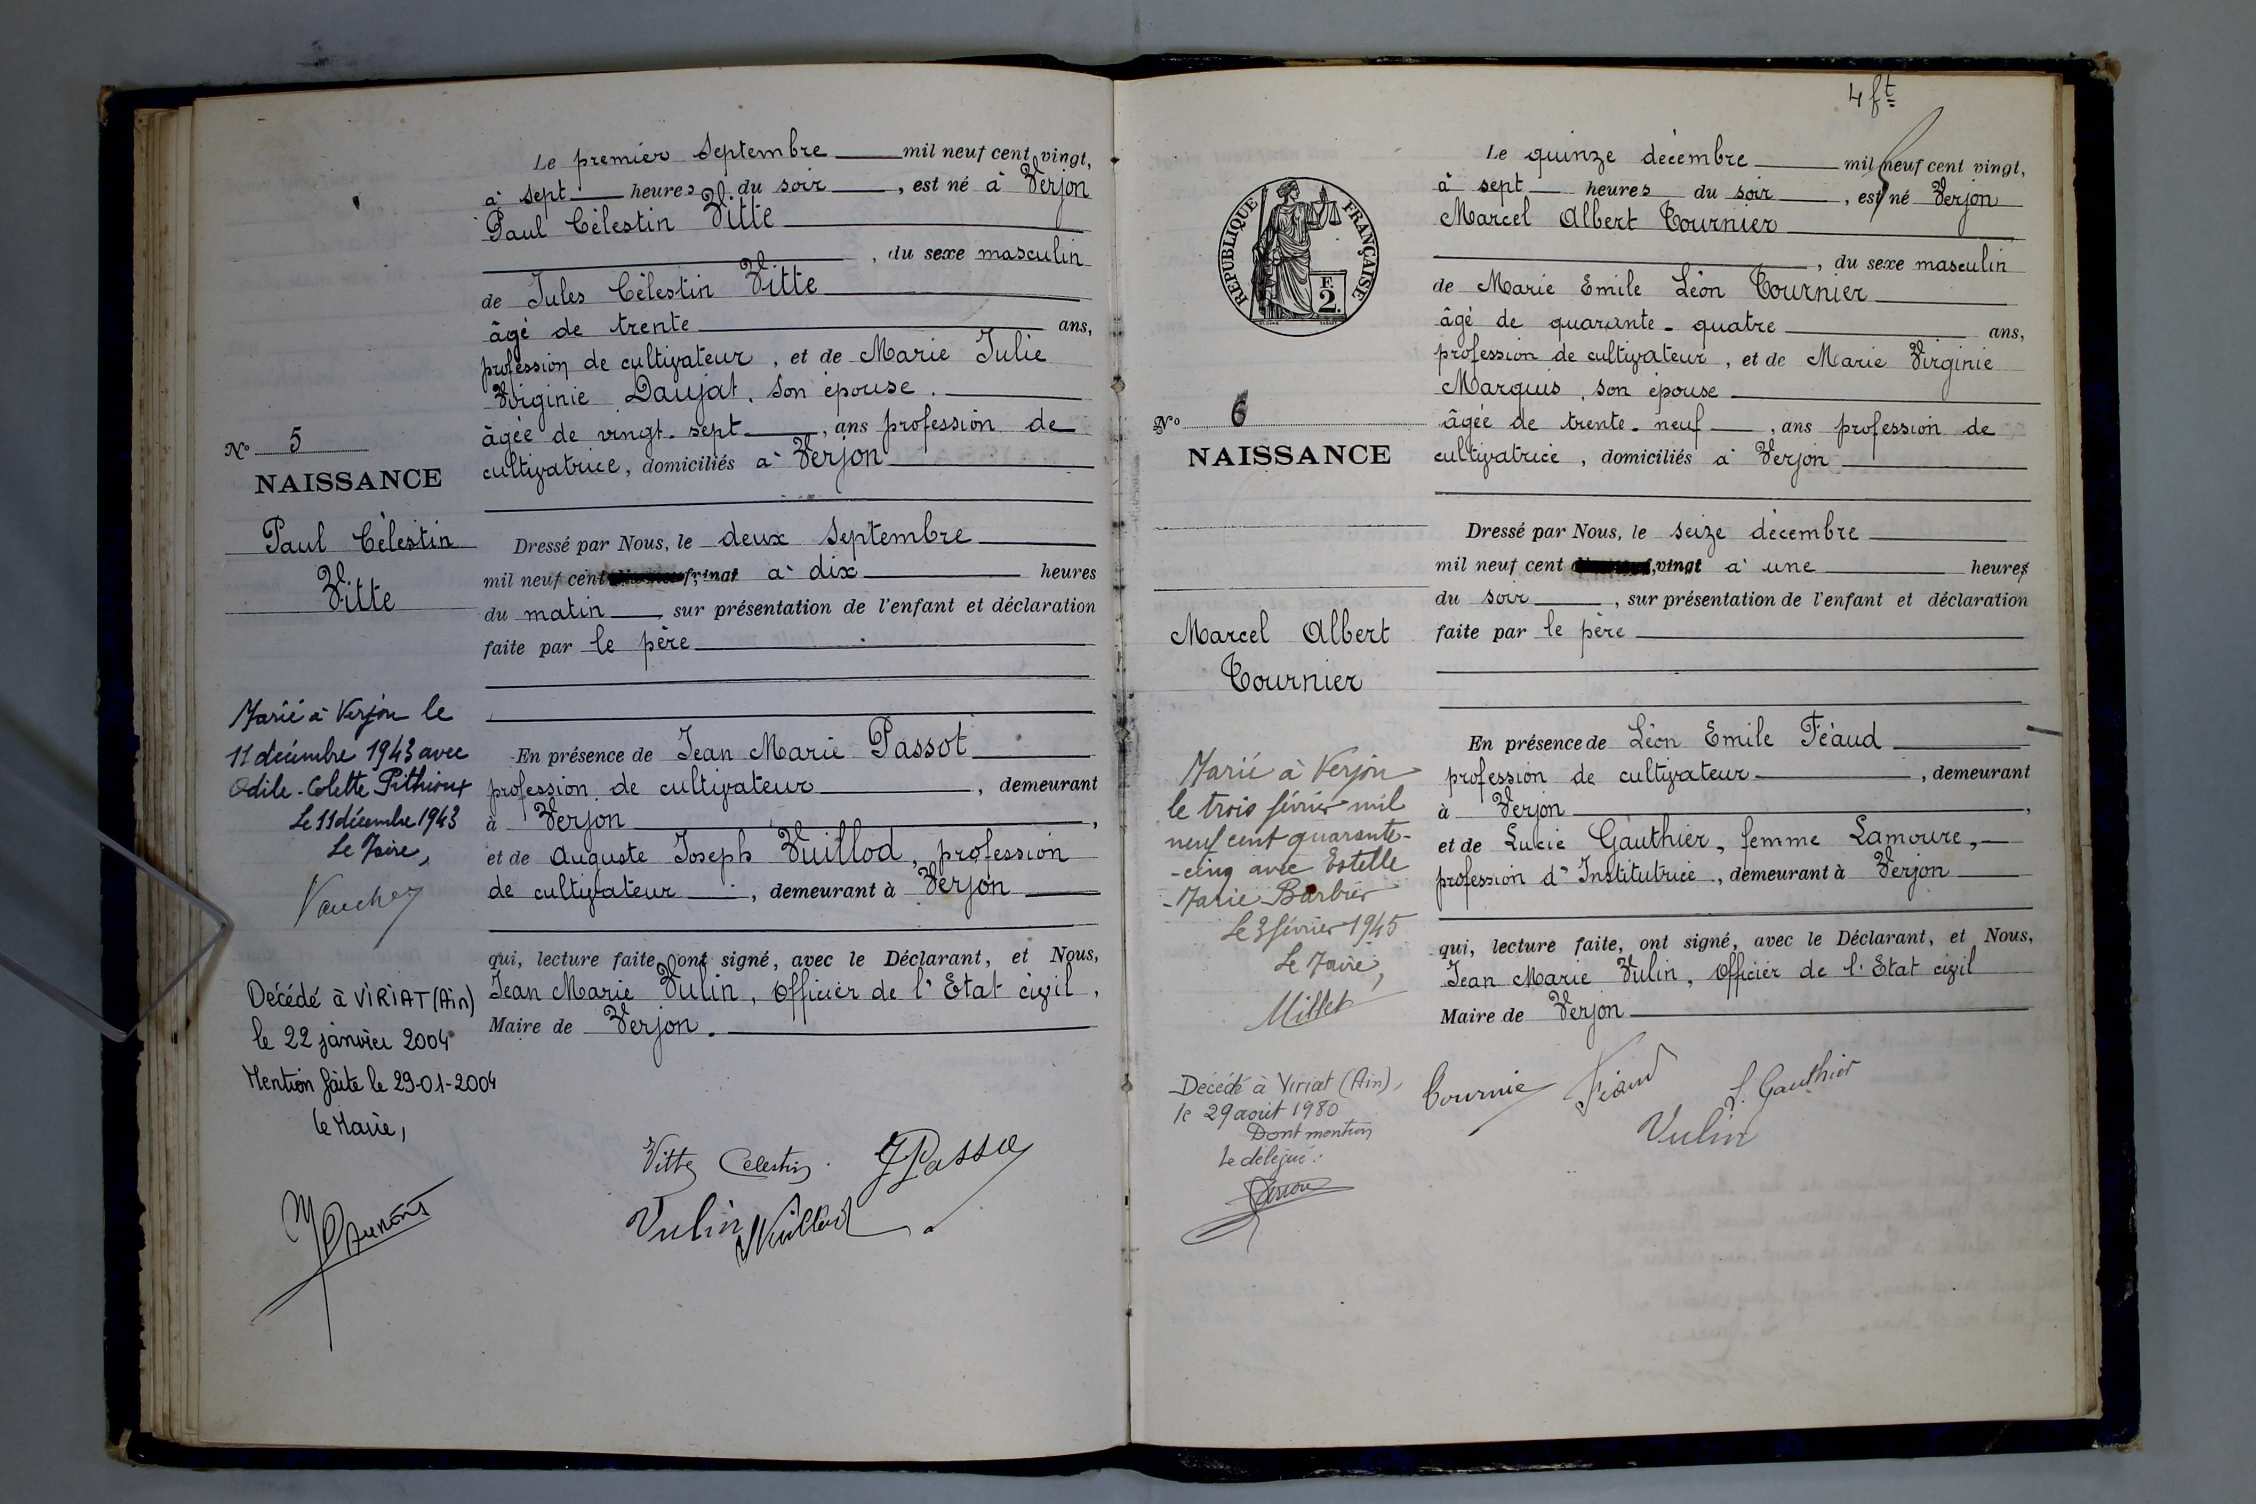 Le premier Septembre mil neuf cent vingt,
à sept heures du soir, est né à Verjon
Paul Célestin Vitte
, du sexe masculin
de Jules Célestin Vitte
âgé de trente ans,
profession de cultivateur, et de Marie Julie
Virginie Daujat, son épouse.
âgée de vingt-sept, ans profession de
cultivatrice, domiciliés à Verjon
Dressé par Nous, le deux Septembre
mil neuf cent vingt à dix heures
du matin, sur présentation de l'enfant et déclaration
faite par le père
En présence de Jean Marie Passot
profession de cultivateur, demeurant
à Verjon,
et de Auguste Joseph Vuillod, profession
de cultivateur, demeurant à Verjon
qui, lecture faite, ont signé, avec le Déclarant, et Nous,
Jean Marie Vulin, Officier de l'Etat civil,
Maire de Verjon.
Vitte Célestin
Vulin
N° 5
NAISSANCE
Paul Célestin
Vitte
Marié à Verjon le
11 décembre 1943 avec
Odile-Colette Pithioux
Le 11 décembre 1943
Le Maire,
Décédé à VIRIAT (Ain)
le 22 janvier 2004
Mention faite le 29-01-2004
le Maire,
4 ft
Le quinze décembre mil neuf cent vingt,
à sept heures du soir, est né Verjon
Marcel Albert Tournier
, du sexe masculin
de Marie Emile Léon Tournier
âgé de quarante-quatre ans,
profession de cultivateur, et de Marie Virginie
Marquis, son épouse
âgée de trente-neuf, ans profession de
cultivatrice, domiciliés à Verjon
Dressé par Nous, le seize décembre
mil neuf cent vingt à une heures
du soir, sur présentation de l'enfant et déclaration
faite par le père
En présence de Léon Emile Féaud
profession de cultivateur, demeurant
à Verjon,
et de Lucie Gauthier, femme Lamoure,
profession d'Institutrice, demeurant à Verjon
qui, lecture faite, ont signé, avec le Déclarant, et Nous,
Jean Marie Vulin, Officier de l'Etat civil
Maire de Verjon
Tournie Féaud L. Gauthier
Vulin
REPUBLIQUE FRANÇAISE
F.
2.
N° 6
NAISSANCE
Marcel Albert
Tournier
Marié à Verjon
le trois février mil
neuf cent quarante-
-cinq avec Estelle
-Marie Barbier
Le 3 février 1945
Le Maire,
Millet
Décédé à Viriat (Ain),
le 29 août 1980
Dont mention
Le délégué: